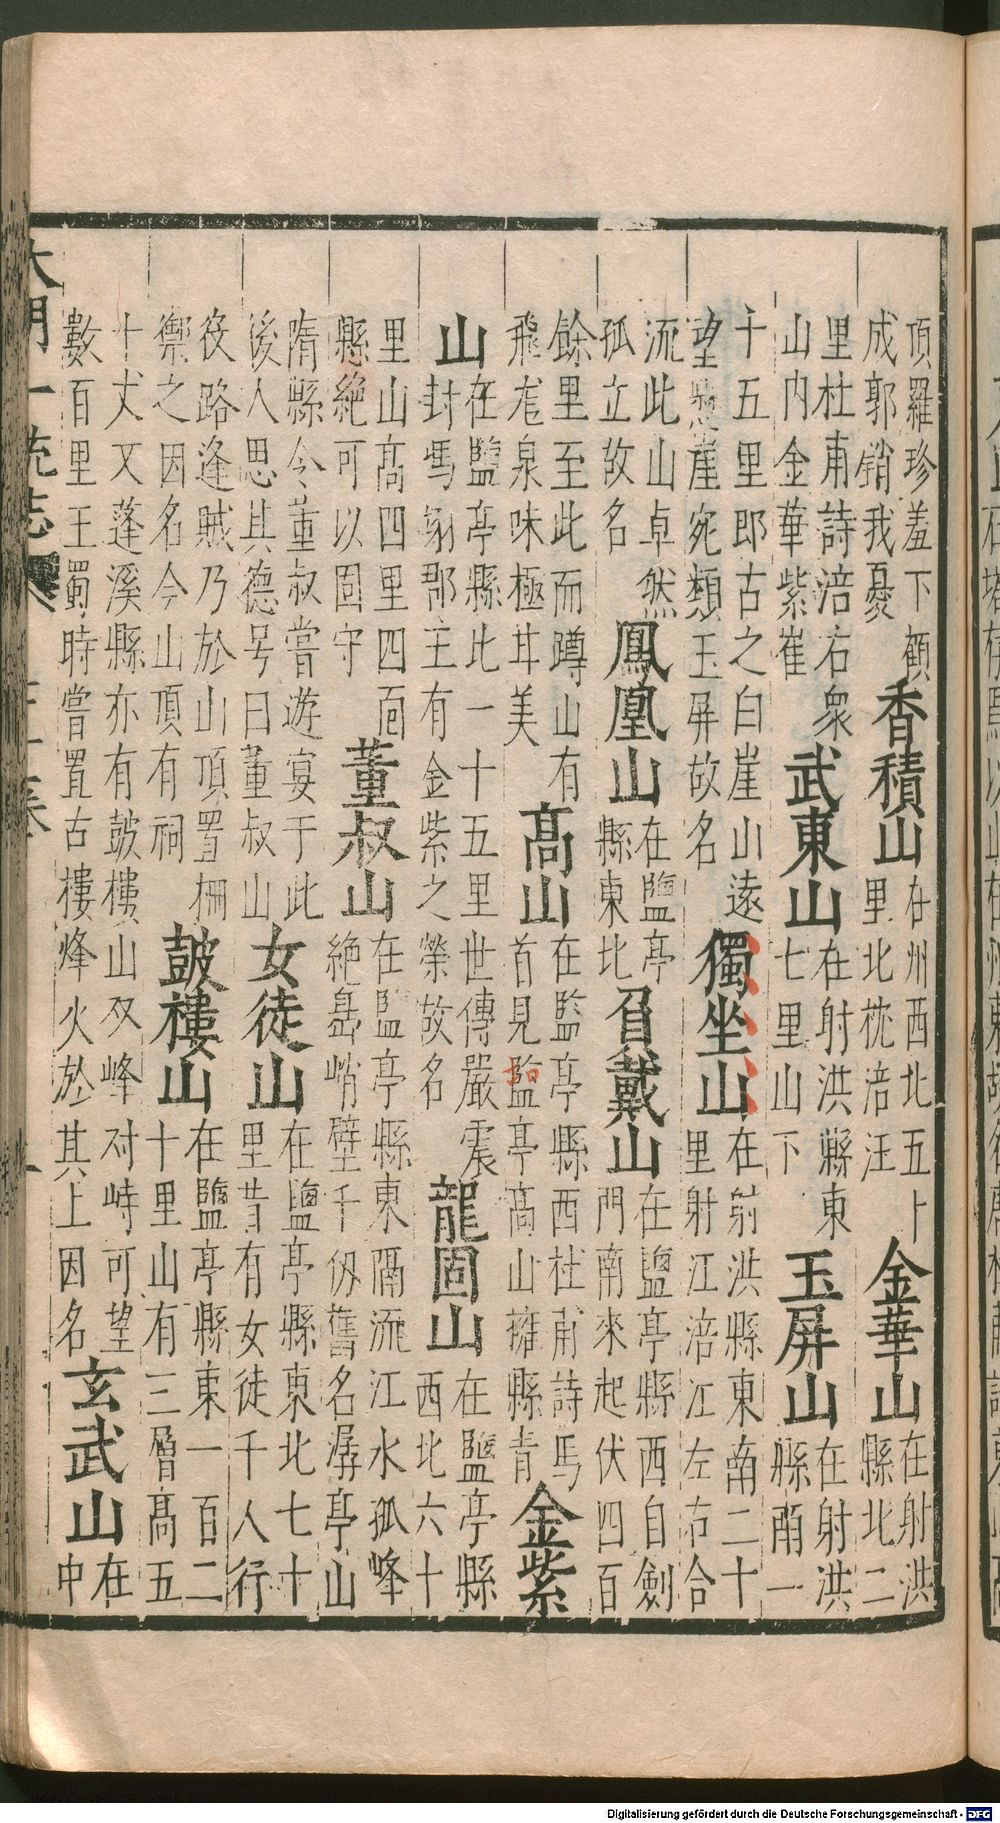 頂羅珍羞下顧成郭銷我憂香積山在州西北五十里北枕涪江金華山在射洪縣北二
里杜甫詩涪右衆山内金華紫崔武東山在射洪縣東七里山下玉屏山在射洪縣南一
十五里即古之白崖山遠望懸崖宛類玉屏故名獨坐山在射洪縣東南二十里射江涪江左右合
流此山卓然孤立故名鳳凰山在鹽亭縣東北負戴山在鹽亭縣西自劍門南來起伏四百
餘里至此而蹲山有飛龍泉味極甘美高山在鹽亭縣西杜甫詩馬首見鹽亭高山擁縣青金紫
山在鹽亭縣北一十五里世傳嚴震封馮翊郡王有金紫之榮故名龍固山在鹽亭縣西北六十
里山高四里四面縣絶可以固守董叔山在鹽亭縣東隔流江水孤峰絶島峭壁千仞舊名潺亭山
隋縣令董叔嘗遊宴于此後人思其德号曰董叔山女徒山在鹽亭縣東北七十里昔有女徒千人行
役路逢賊乃於山頂置柵禦之因名今山頂有祠皷樓山在鹽亭縣東一百二十里山有三層高五
十丈又蓬溪縣亦有皷樓山双峰对峙可望數百里王蜀時嘗置古樓烽火於其上因名玄武山在中
大明一統志
Digitalisierung gefördert durch die Deutsche Forschungsgemeinschaft - DFG